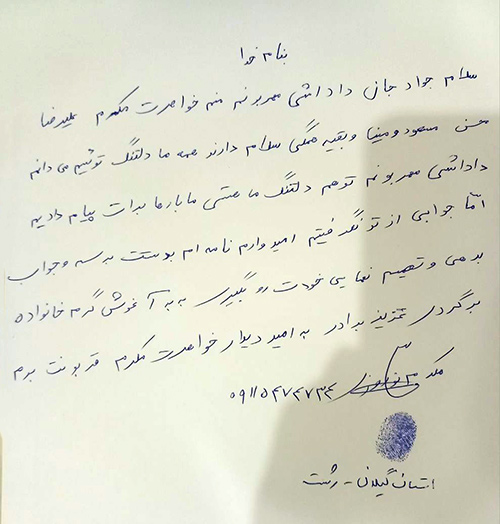 بنام خدا
سلام جواد جان داداشی مهربونم منم خواهرت مکرم علیرضا
محسن مسعود و مینا و بقیه همگی سلام دارند همه ما دلتنگ توئیم می دانم
داداشی مهربونم توهم دلتنگ ما هستی ما بارها برات پیام دادیم
امّا جوابی از تو نگرفتیم امیدوارم نامه ام بدستت برسه و جواب
بدهی و تصمیم نهایی خودت رو بگیری به به آغوش گرم خانواده
برگردی عزیز برادر به امید دیدار خواهرت مکرم قربونت برم
مکرم
استان گیلان - رشت